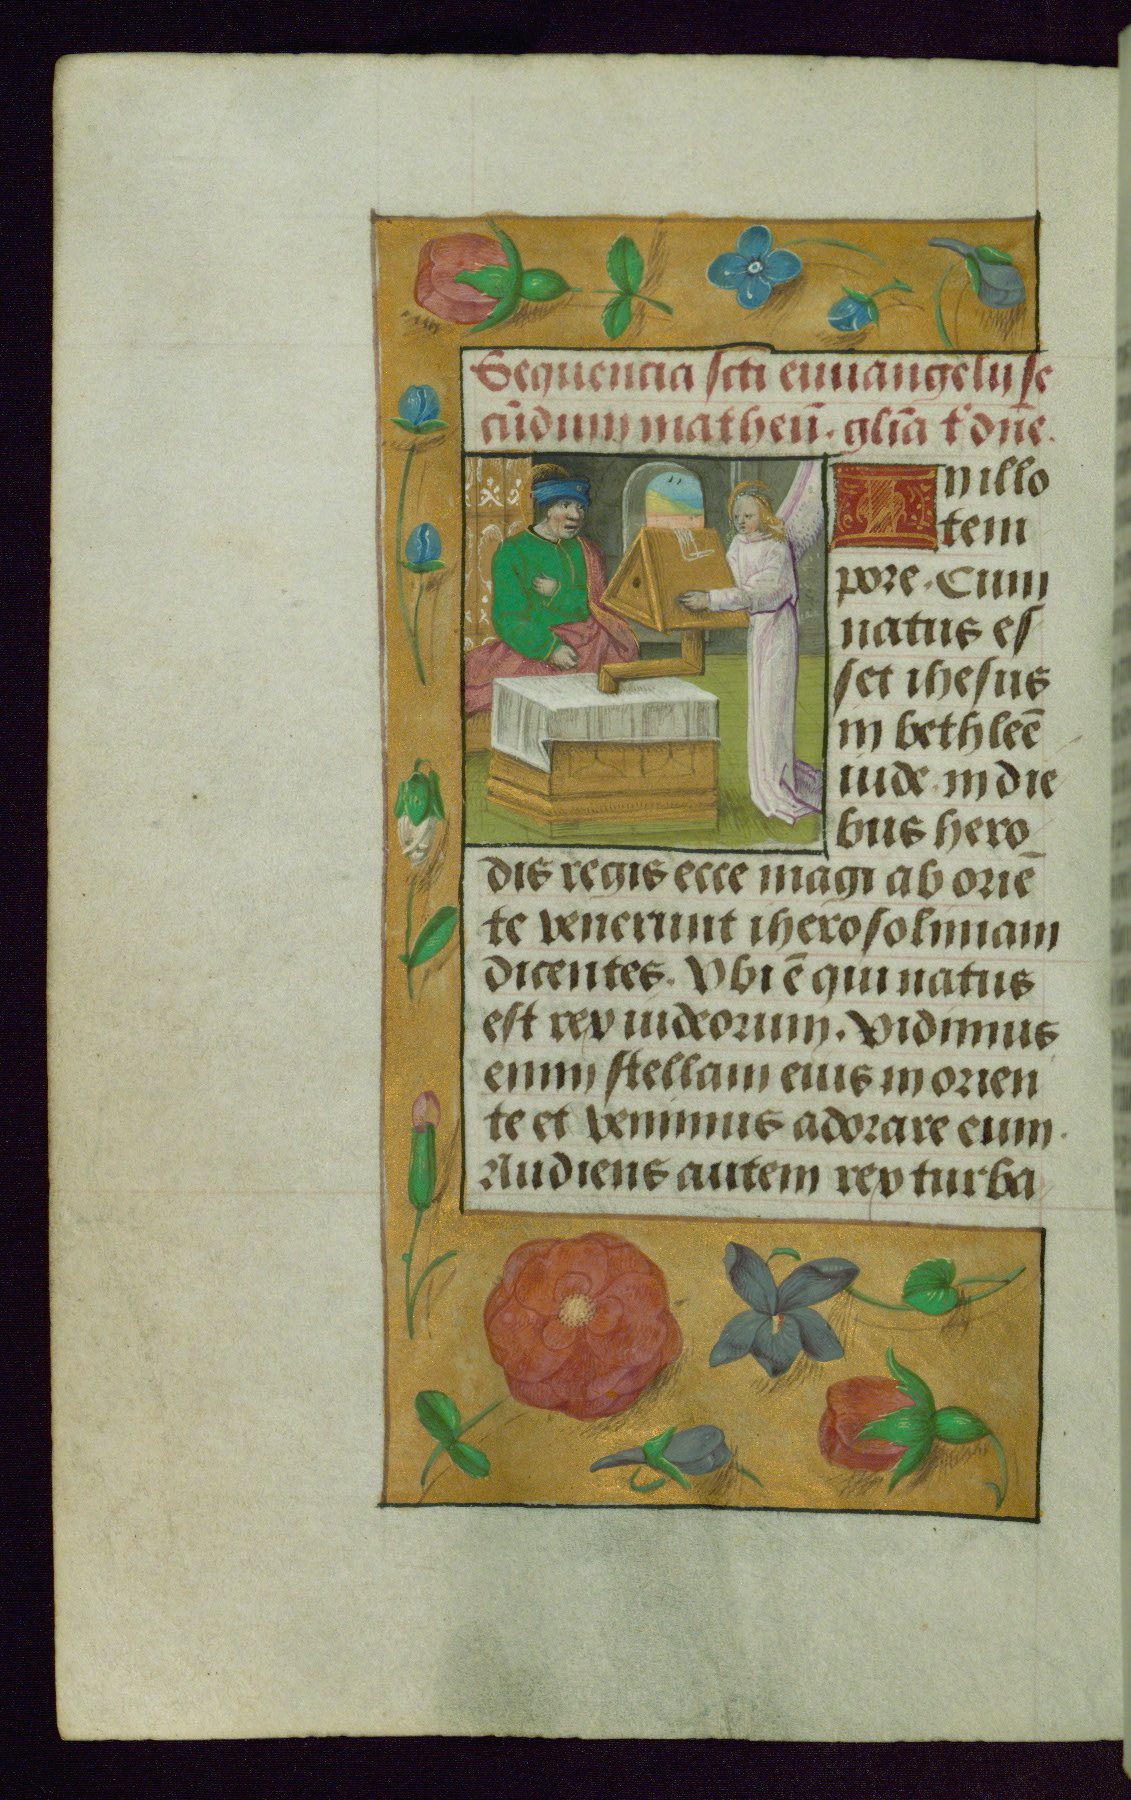 Sequencia scti euuangelii se
cūdum matheū. glīa t' dñe.
In illo
tem
pore. Cum
natus es
set ihesus
in bethleē
iude in die
bus hero
dis regis ecce magi ab oriē
te venerunt iherosolimam
dicentes. Vbi ē qui natus
est rex iudeorum. Vidimus
enim stellam eius in orien
te et venimus adorare eum.
Audiens autem rex turba